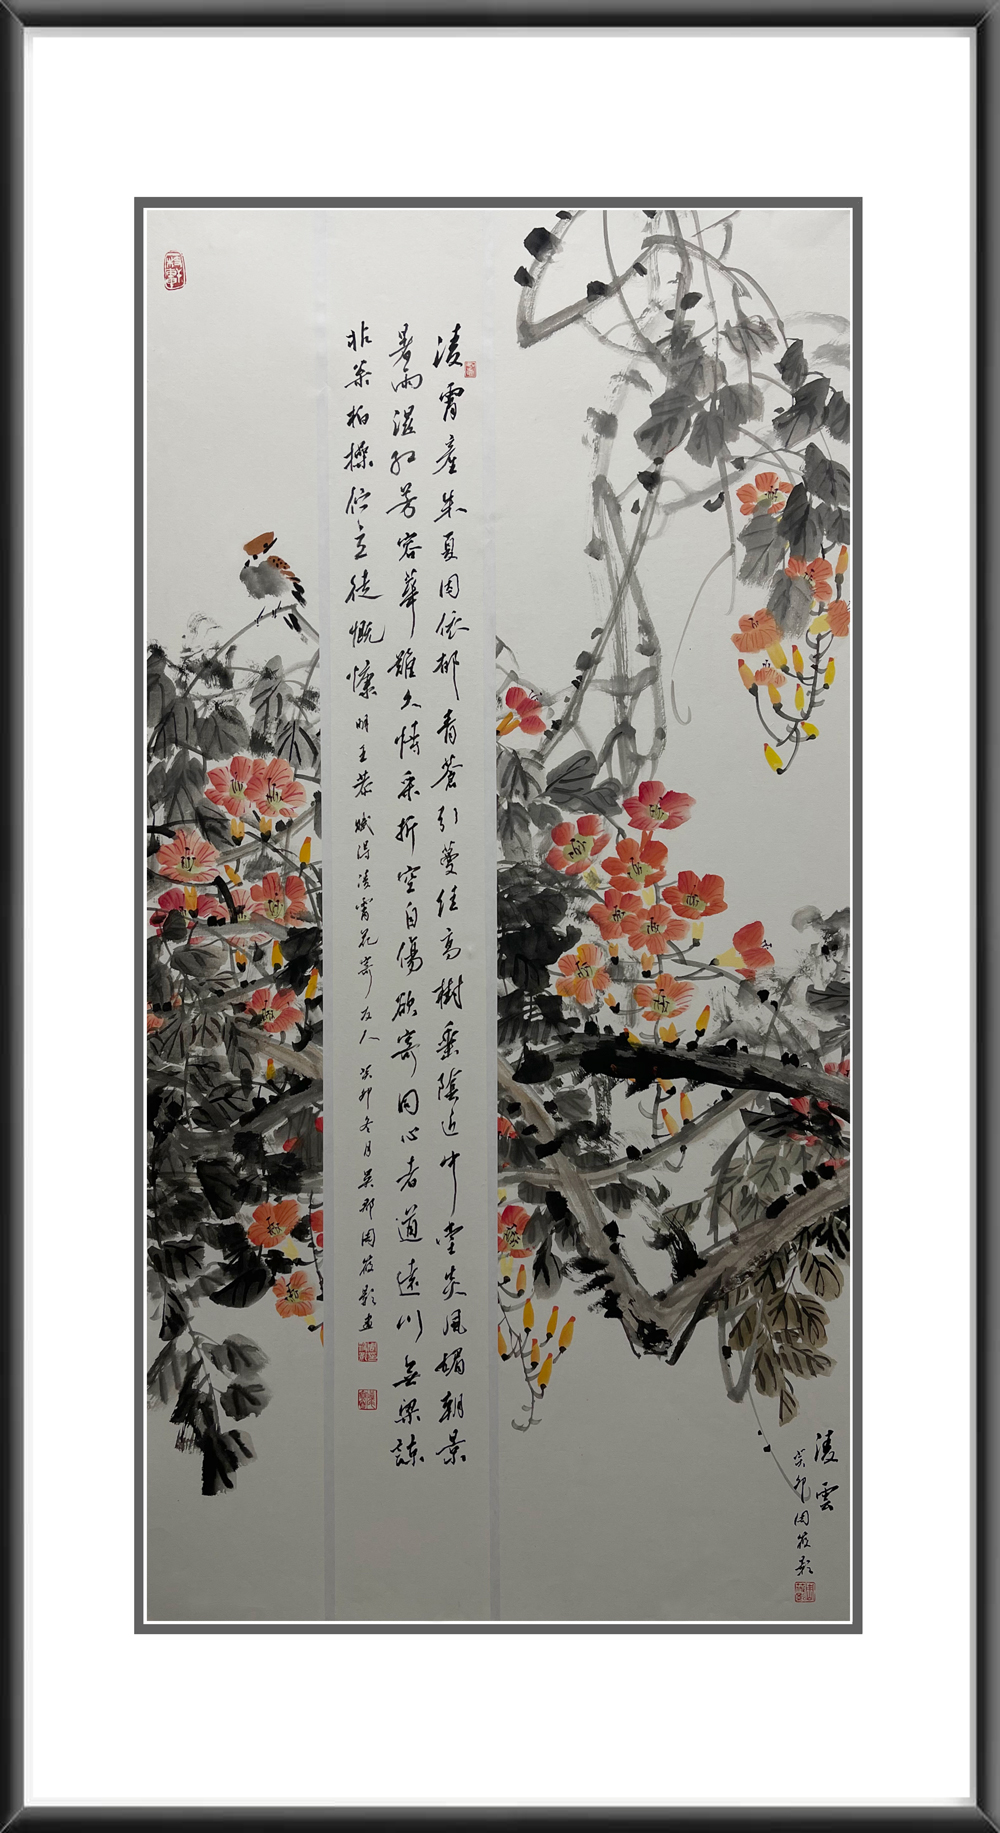 凌霄産朱夏因依郁青蒼引蔓任高樹垂陰近中堂炎風媚朝景
暑雨滋紅芳容華雖久恃采折空自傷欲寄同心者道遠川無梁諒
非荼柏操伫立徒慨慷 明王恭賦得凌霄花寄友人 癸卯冬月吴郡周筱影畫
凌雲
癸卯周筱影